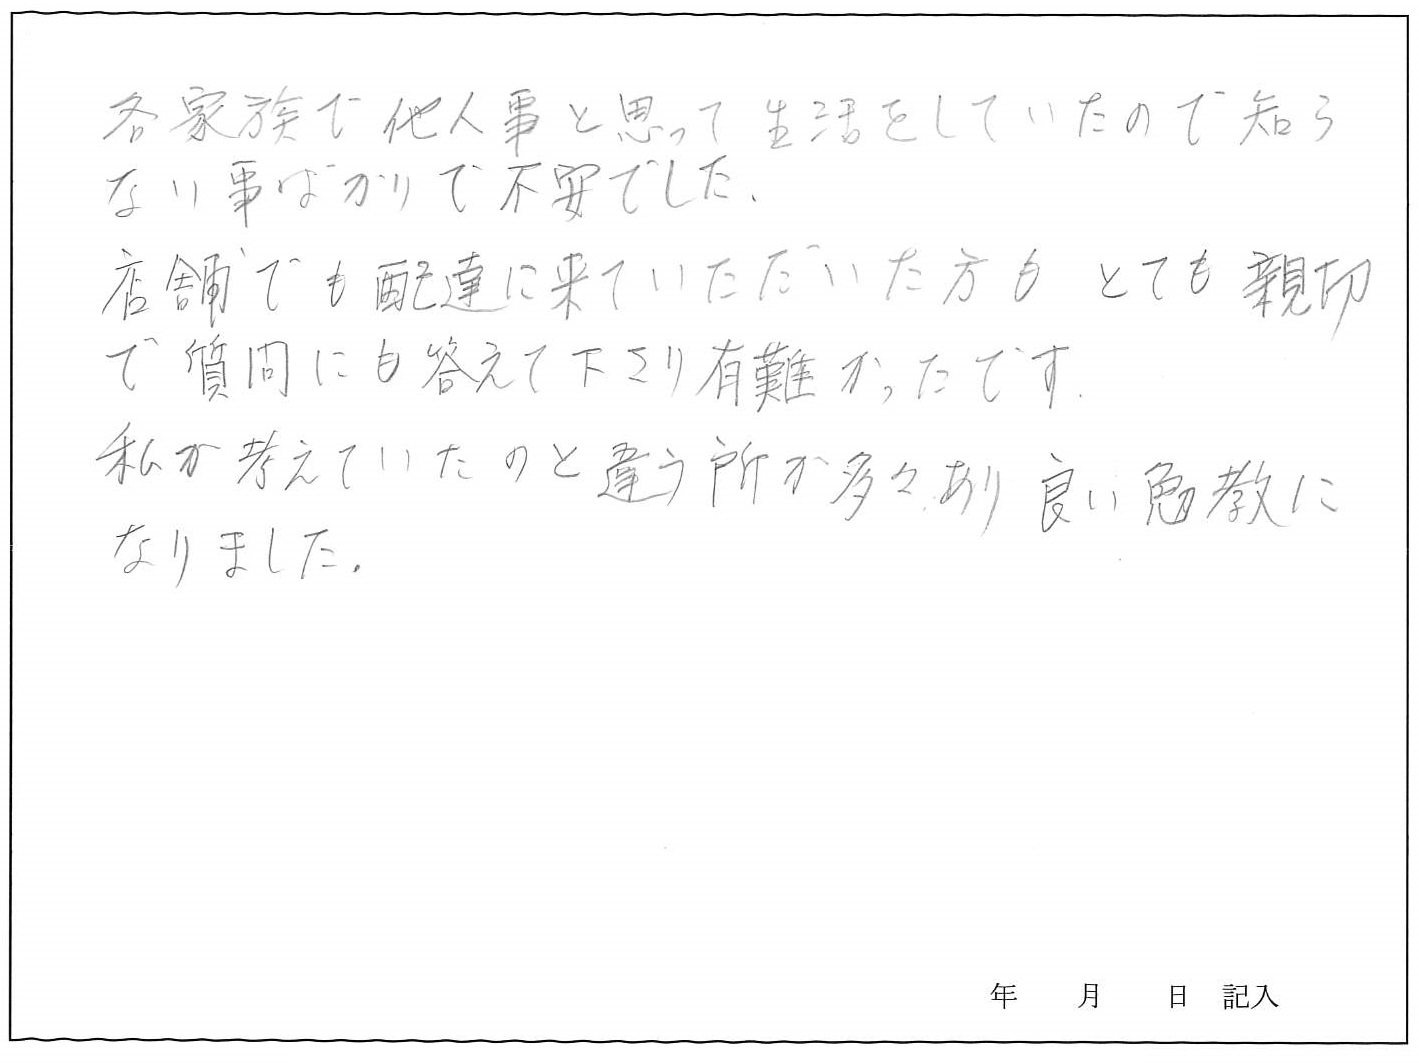 各家族で他人事と思って生活をしていたので知ら
ない事ばかりで不安でした。
店舗でも配達に来ていただいた方も とても親切
で質問にも答えて下さり有難かったです.
私が考えていたのと違う所が多々あり良い勉教に
なりました.
年 月 日 記入